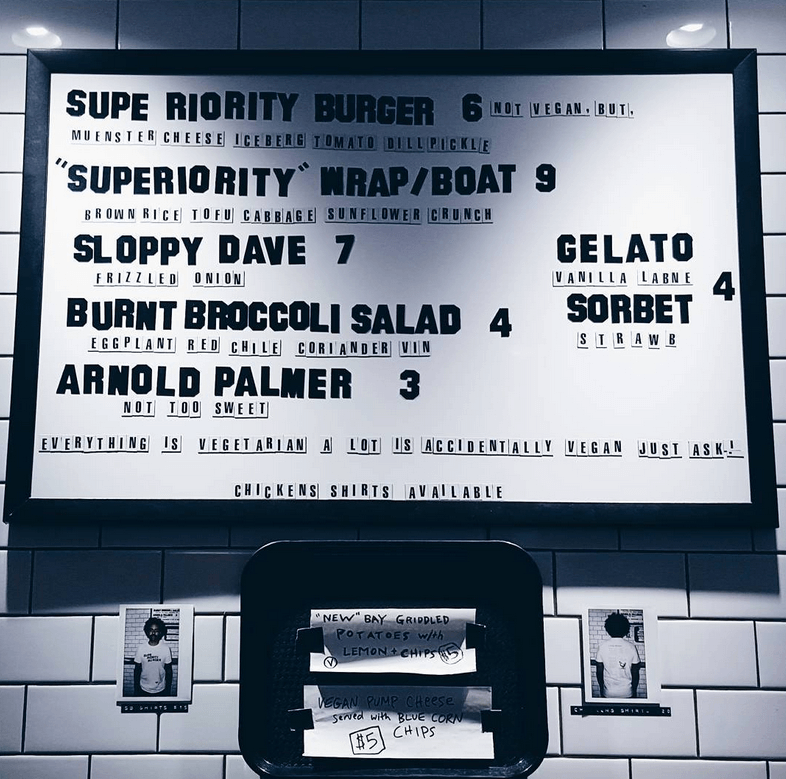 SUPE RIORITY BURGER 6 NOT VEGAN, BUT,
MUENSTER CHEESE ICEBERG TOMATO DILL PICKLE
"SUPERIORITY" WRAP/BOAT 9
BROWN RICE TOFU CABBAGE SUNFLOWER CRUNCH
SLOPPY DAVE 7
FRIZZLED ONION
BURNT BROCCOLI SALAD 4
EGGPLANT RED CHILE CORIANDER VIN
ARNOLD PALMER 3
NOT TOO SWEET
GELATO
VANILLA LABNE
4
SORBET
STRAWB
EVERYTHING IS VEGETARIAN A LOT IS ACCIDENTALLY VEGAN JUST ASK-!
CHICKENS SHIRTS AVAILABLE
"NEW" BAY GRIDDLED
POTATOES w/th
LEMON + CHIPS $5
V
VEGAN PUMP CHEESE
served with BLUE CORN
$5 CHIPS
SB SHIRTS $15